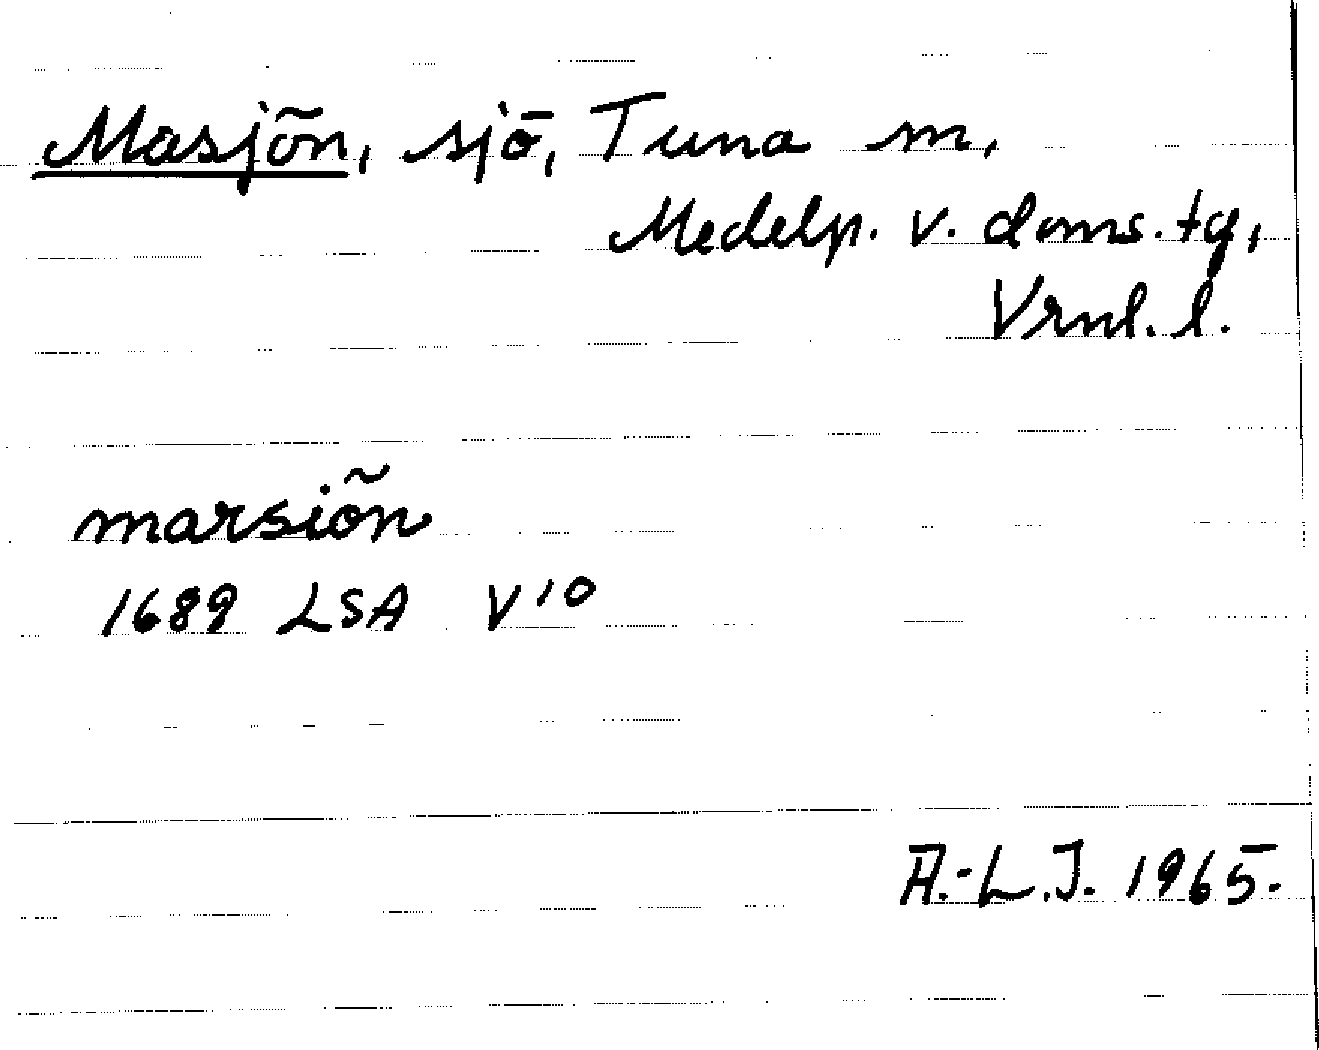 Masjön, sjö, Tuna sn,
Medelp. v. doms. tg,
Vrnl. l.
marsiön
1689 LSA V10
A.-L.J. 1965.